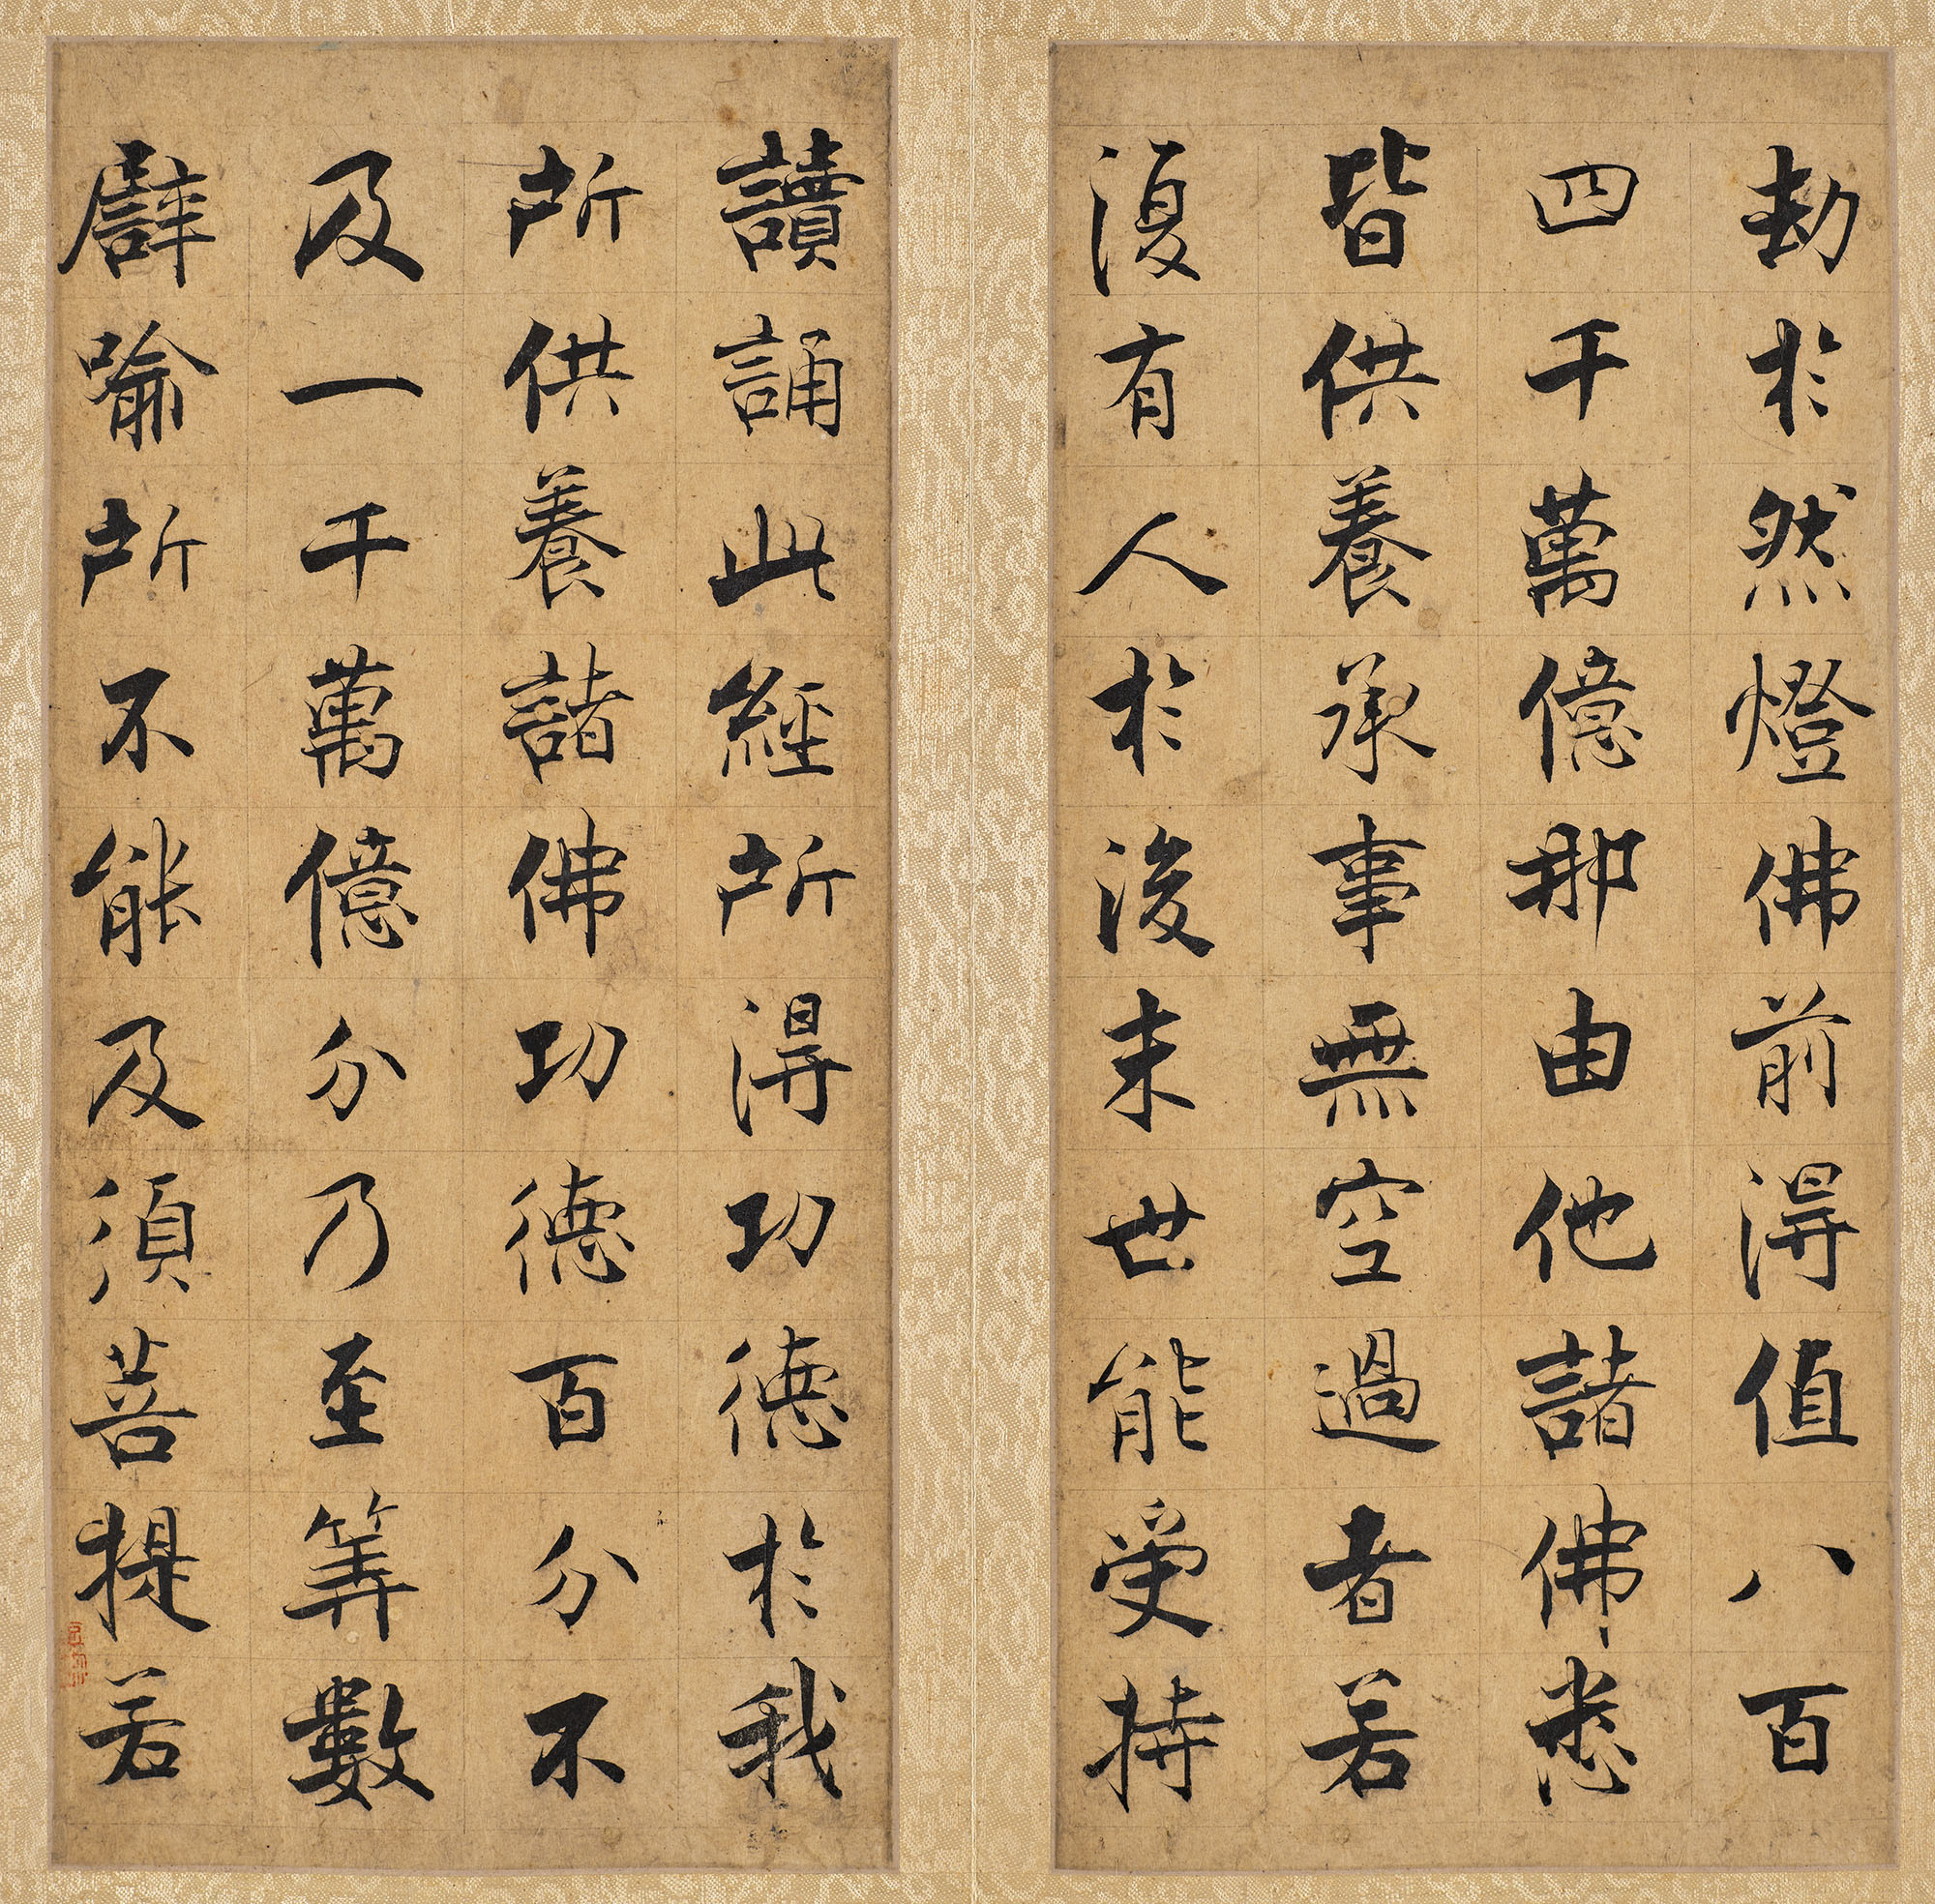 劫於然燈佛前得值八百
四千萬億那由他諸佛悉
皆供養承事無空過者若
復有人於後末世能受持
讀誦此經所得功德於我
所供養諸佛功德百分不
及一千萬億分乃至筭數
譬喻所不能及須菩提若